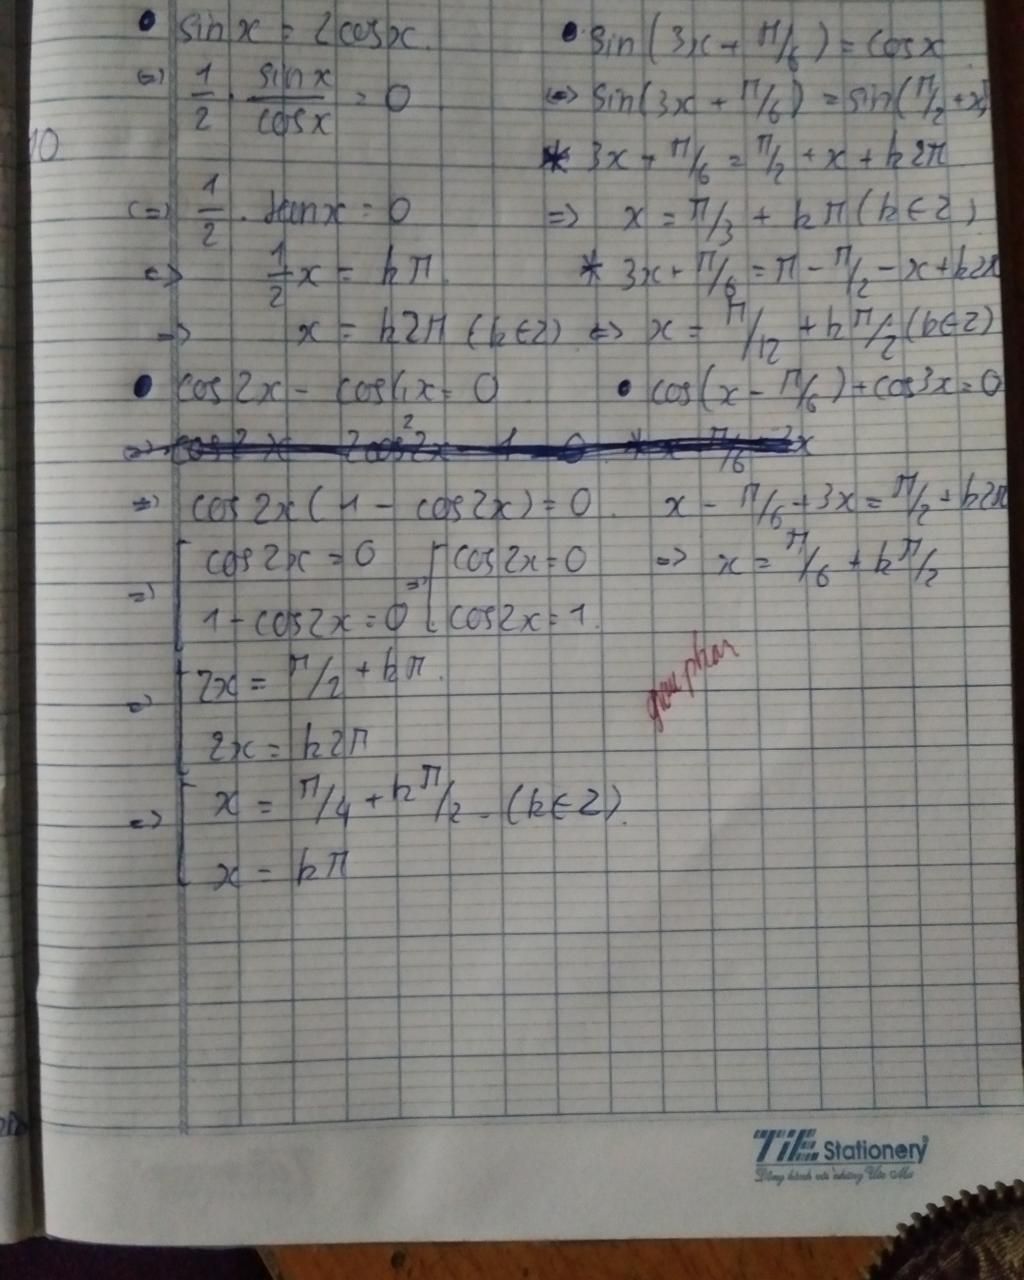 • sin x = 2cos x.
(=) 1/2 · sin x / cos x = 0
10
(=) 1/2 . tan x = 0
<=> 1/2 x = kπ.
=> x = k2π (k∈Z)
• sin(3x + π/6) = cos x
<=> sin(3x + π/6) = sin(π/2 + x)
* 3x + π/6 = π/2 + x + k2π
=> x = π/3 + kπ (k∈Z)
* 3x + π/6 = π - π/2 - x + k2π
<=> x = π/12 + kπ/2 (k∈Z)
• cos2x - cos4x = 0
=> cos2x (1 - cos2x) = 0.
=> [ cos2x = 0 => [ cos2x = 0
1 - cos2x = 0 cos2x = 1.
=> [ 2x = π/2 + kπ.
2x = k2π
<=> [ x = π/4 + kπ/2 - (k∈Z).
x = kπ
• cos(x - π/6) + cos3x = 0
x - π/6 + 3x = π/2 + k2π
=> x = π/6 + kπ/2
TiE Stationery
Đồng hành với những Ước Mơ